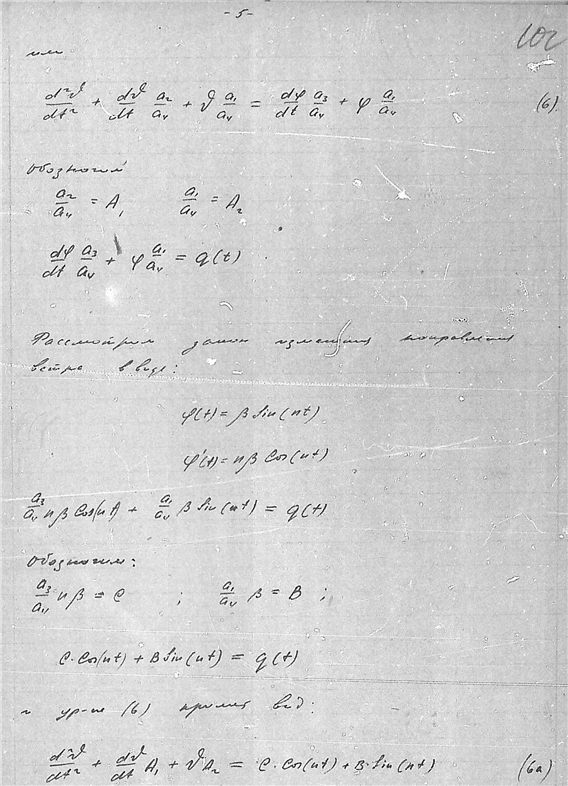 - 5 -
102
или
d²ϑ/dt² + dϑ/dt a₂/a₄ + ϑ a₁/a₄ = dφ/dt a₃/a₄ + φ a₁/a₄ (6)
Обозначим
a₂/a₄ = A₁ a₁/a₄ = A₂
dφ/dt a₃/a₄ + φ a₁/a₄ = q(t)
Рассмотрим закон изменения направления
ветра в виде:
φ(t) = β Sin(nt)
φ'(t) = nβ Cos(nt)
a₃/a₄ nβ Cos(nt) + a₁/a₄ β Sin(nt) = q(t)
Обозначим:
a₃/a₄ nβ = C ; a₁/a₄ β = B ;
C·Cos(nt) + B Sin(nt) = q(t)
и ур-ие (6) примет вид:
d²ϑ/dt² + dϑ/dt A₁ + ϑ A₂ = C·Cos(nt) + B·Sin(nt) (6a)